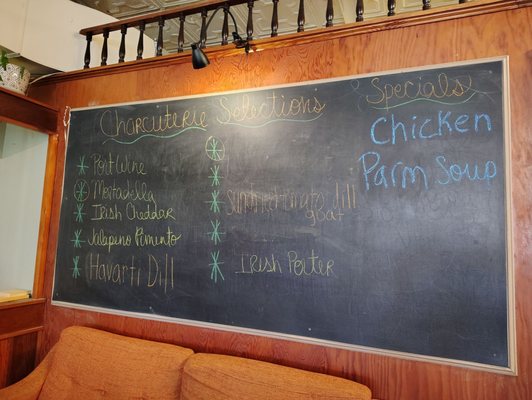 Charcuterie Selections
Port Wine
Mortadella
Irish Cheddar
Jalapeno Pimento
Havarti Dill
Sundried tomato dill
goat
Irish Porter
Specials
Chicken
Parm Soup